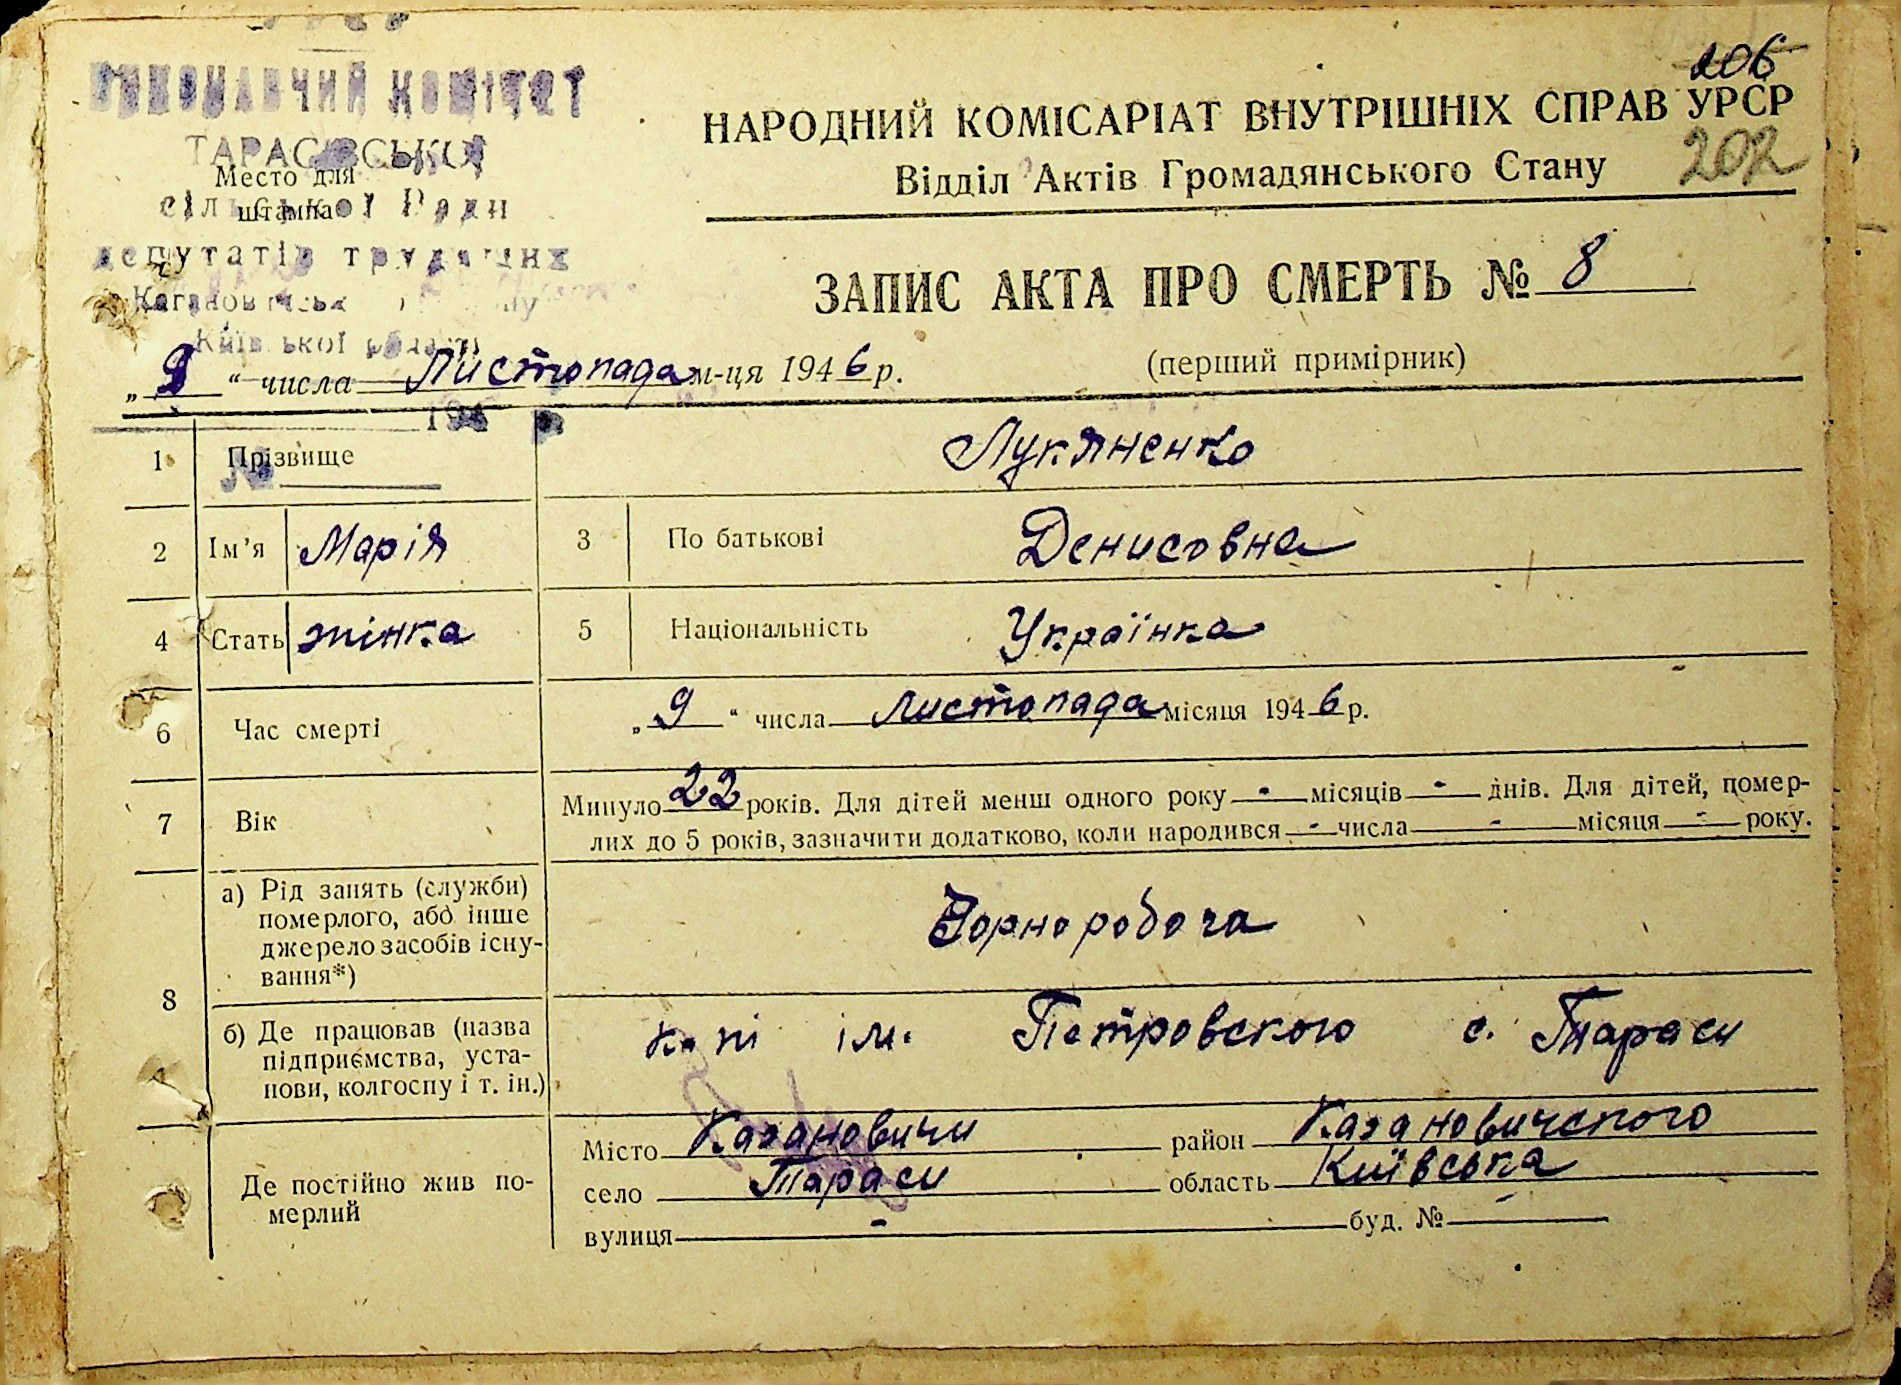 206
ВИКОНАВЧИЙ КОМІТЕТ
НАРОДНИЙ КОМІСАРІАТ ВНУТРІШНІХ СПРАВ УРСР
202
Відділ Актів Громадянського Стану
ТАРАСІВСЬКОЇ
Место для
штампа
сільської Ради
депутатів трудящих
Київської області
ЗАПИС АКТА ПРО СМЕРТЬ № 8
(перший примірник)
„9“ числа Листопада м-ця 1946 р.
194
№
1 Прізвище Лукяненко
2 Ім'я Марія 3 По батькові Денисовна
4 Стать жінка 5 Національність Українка
6 Час смерті „9“ числа Листопада місяця 1946 р.
7 Вік Минуло 22 років. Для дітей менш одного року - місяців - днів. Для дітей, помер-
лих до 5 років, зазначити додатково, коли народився - числа - місяця - року.
8 а) Рід занять (служби)
померлого, або інше
джерело засобів існу-
вання*)
Чорноробоча
б) Де працював (назва
підприємства, уста-
нови, колгоспу і т. ін.)
ім. Петровского с. Тараси
Де постійно жив по-
мерлий
Місто Кагановичи район Кагановичского
село Тараси область Київська
вулиця - буд. № -